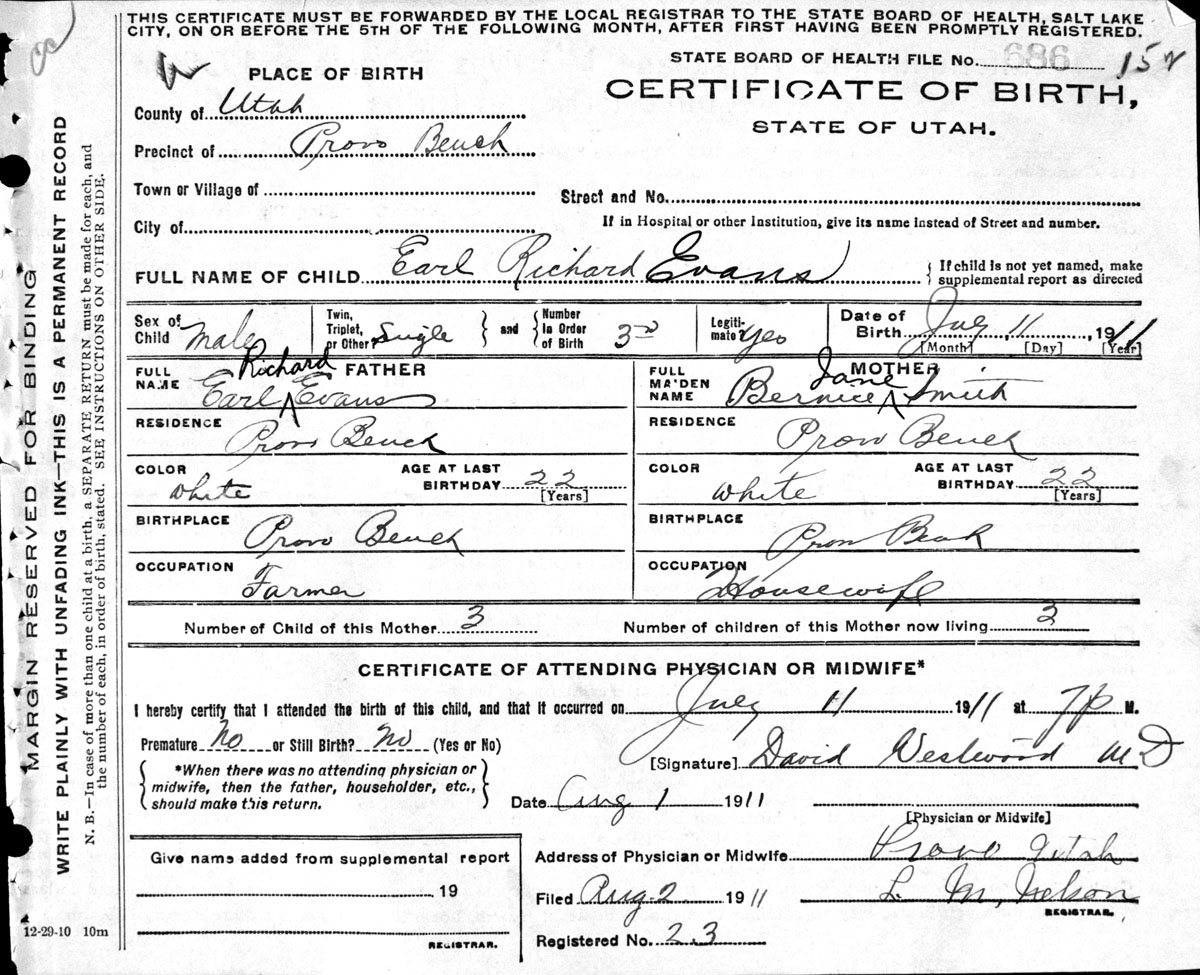 THIS CERTIFICATE MUST BE FORWARDED BY THE LOCAL REGISTRAR TO THE STATE BOARD OF HEALTH, SALT LAKE
CITY, ON OR BEFORE THE 5TH OF THE FOLLOWING MONTH, AFTER FIRST HAVING BEEN PROMPTLY REGISTERED.
STATE BOARD OF HEALTH FILE NO. 686 152
PLACE OF BIRTH
CERTIFICATE OF BIRTH,
STATE OF UTAH.
County of Utah
Precinct of Provo Bench
Town or Village of
Street and No.
City of
If in Hospital or other Institution, give its name instead of Street and number.
FULL NAME OF CHILD Earl Richard Evans
If child is not yet named, make
supplemental report as directed
Sex of Child Male
Twin, Triplet, or Other Single and Number in Order of Birth 3rd
Legitimate? Yes
Date of Birth July 11, 1911
[Month] [Day] [Year]
FATHER
FULL NAME Earl Richard Evans
RESIDENCE Provo Bench
COLOR White
AGE AT LAST BIRTHDAY 22
[Years]
BIRTHPLACE Provo Bench
OCCUPATION Farmer
MOTHER
FULL MAIDEN NAME Bernice Jane Smith
RESIDENCE Provo Bench
COLOR White
AGE AT LAST BIRTHDAY 22
[Years]
BIRTHPLACE Provo Bench
OCCUPATION Housewife
Number of Child of this Mother 3
Number of children of this Mother now living 3
CERTIFICATE OF ATTENDING PHYSICIAN OR MIDWIFE*
I hereby certify that I attended the birth of this child, and that it occurred on July 11 1911 at 7 P M.
Premature No or Still Birth? No (Yes or No)
[Signature] David Westwood MD
*When there was no attending physician or
midwife, then the father, householder, etc.,
should make this return.
Date Aug 1 1911
[Physician or Midwife]
Give name added from supplemental report
19
REGISTRAR.
Address of Physician or Midwife Provo Utah
Filed Aug. 2 1911 L. M. Nelson
REGISTRAR.
Registered No. 23
12-29-10 10m
MARGIN RESERVED FOR BINDING
WRITE PLAINLY WITH UNFADING INK—THIS IS A PERMANENT RECORD
N. B.—In case of more than one child at a birth, a SEPARATE RETURN must be made for each, and
the number of each, in order of birth, stated. SEE INSTRUCTIONS ON OTHER SIDE.